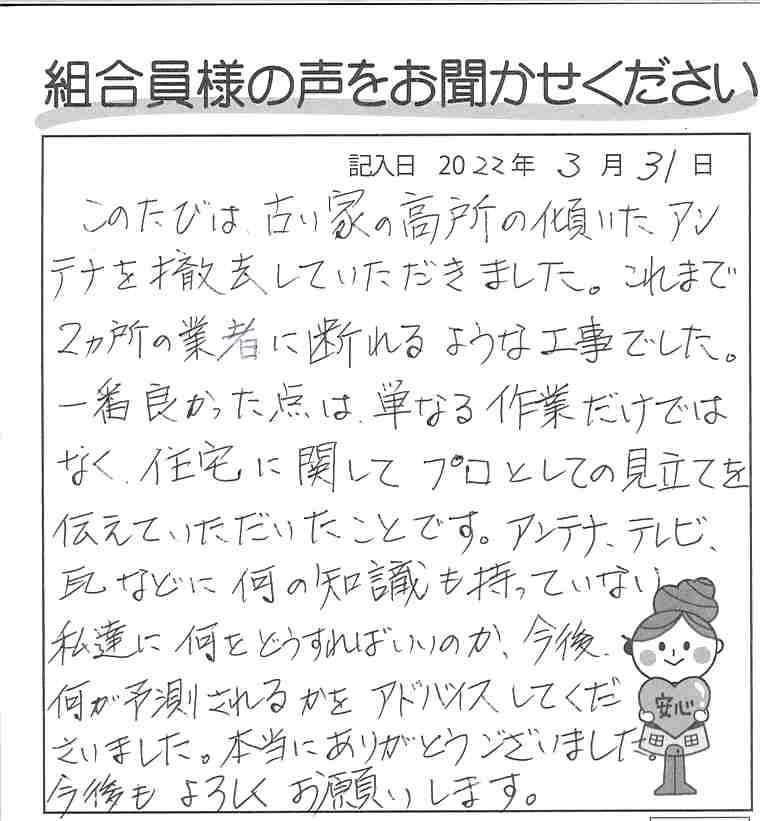 組合員様の声をお聞かせください
記入日 2022年 3月 31日
このたびは、古い家の高所の傾いたアン
テナを撤去していただきました。これまで
2ヵ所の業者に断れるような工事でした。
一番良かった点は、単なる作業だけでは
なく、住宅に関してプロとしての見立てを
伝えていただいたことです。アンテナ、テレビ、
瓦などに何の知識も持っていない
私達に何をどうすればいいのか、今後、
何が予測されるかをアドバイスしてくだ
さいました。本当にありがとうございました。
今後もよろしくお願いします。
安心